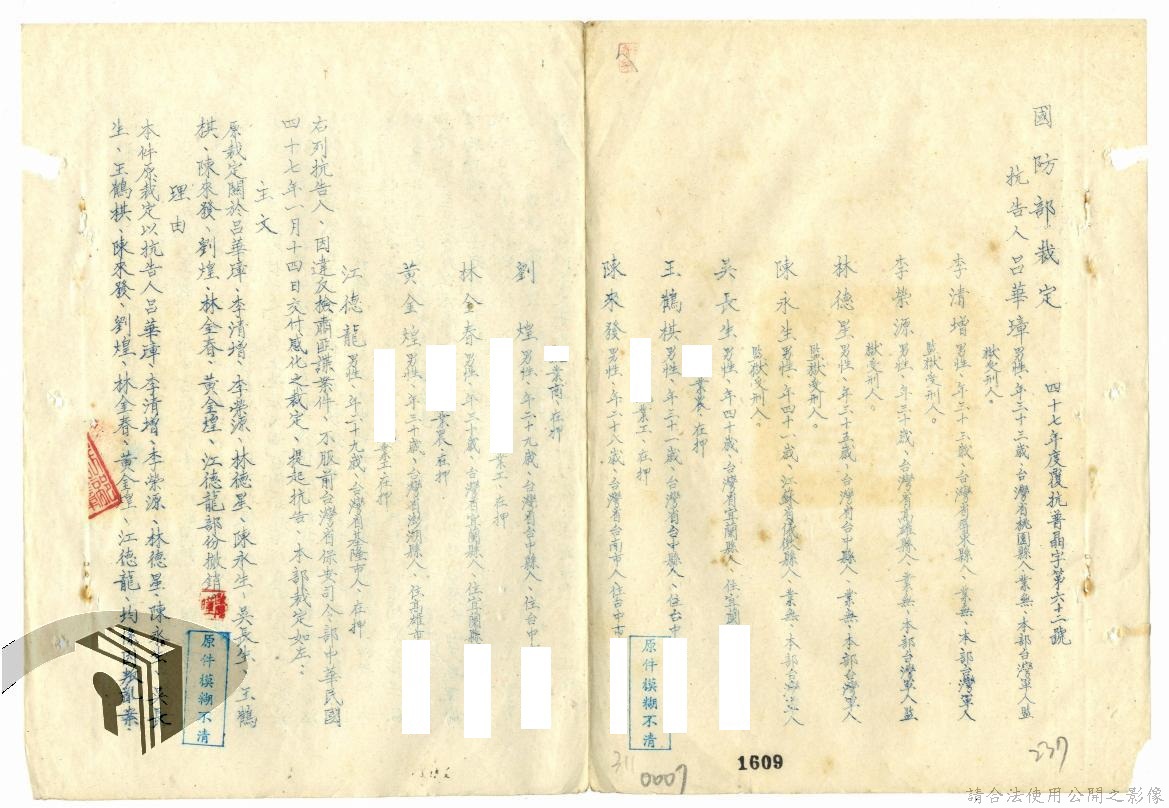 國防部裁定
四十七年度覆抗普晶字第六十二號
抗告人 呂華璋 男性、年三十三歲、台灣省桃園縣人、業無、本部台灣軍人監
獄受刑人。
李清增 男性、年三十三歲、台灣省屏東縣人、業無、本部台灣軍人
監獄受刑人。
李榮源 男性、年三十歲、台灣省縣人、業無、本部台灣軍人監
獄受刑人。
林德星 男性、年二十五歲、台灣省台中縣人、業無、本部台灣軍人
監獄受刑人。
陳永生 男性、年四十一歲、江蘇省縣人、業無、本部台灣軍人
監獄受刑人。
吳長生 男性、年四十歲、台灣省宜蘭縣人、住宜蘭
業農、在押
王鶴棋 男性、年三十一歲、台灣省台中縣人、住台中
業工、在押
陳來發 男性、年二十八歲、台灣省台南市人、住台中市
劉煌 男性、年二十九歲、台灣省台中縣人、住台中
業商、在押
林金春 男性、年三十歲、台灣省宜蘭縣人、住宜蘭縣
業工、在押
黃金煌 男性、年二十歲、台灣省澎湖縣人、住高雄市
業農、在押
江德龍 男性、年二十九歲、台灣省基隆市人、在押
業工、在押
右列抗告人、因違反檢肅匪諜案件、不服前台灣省保安司令部中華民國
四十七年一月十四日交付感化之裁定、提起抗告、本部裁定如左：
主文
原裁定關於呂華璋、李清增、李榮源、林德星、陳永生、吳長生、王鶴
棋、陳來發、劉煌、林金春、黃金煌、江德龍部份撤銷
理由
本件原裁定以抗告人呂華璋、李清增、李榮源、林德星、陳永生、吳長
生、王鶴棋、陳來發、劉煌、林金春、黃金煌、江德龍、均係因叛亂案、
原件模糊不清
原件模糊不清
311
0007
1609
237
請合法使用公開之影像